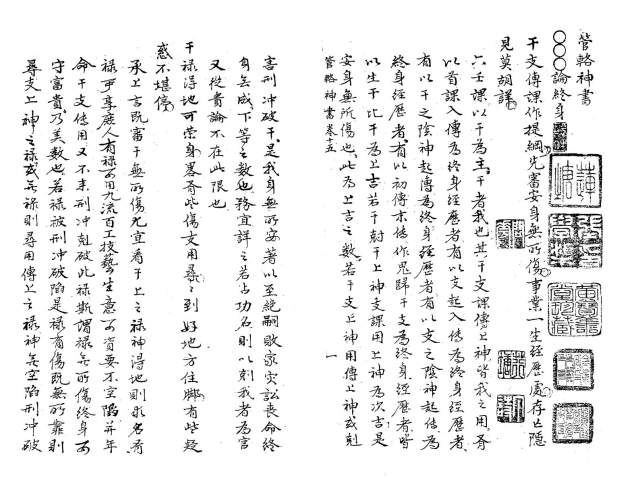 管輅神書
○○○論終身
干支傳課作提綱先審安身無所傷事業一生經歷處存亡隱
見莫胡詳
六壬課以干為主干者我也其干支課傳上神皆我之用有
以首課入傳為終身經歷者有以支起入傳為終身經歷者
有以干之陰神起傳為終身經歷者有以支之陰神起傳為
終身經歷者有以初傳末傳作鬼歸干支為終身經歷者皆
以生于比干為上吉若干尅干上神支課用上神為次吉是
安身無所傷也此為上吉之數若干支上神用傳上神或刻
管輅神書卷十五
一
害刑冲破干是我身無所安著以至絕嗣敗家灾訟喪命終
身無成下等之數也務宜詳之若占功名則以刻我者為官
又從貴論不在此限也
干祿得地可榮身畧有些傷支用尋之到好地方住脚有些疑
惑不堪停
承上言既審干無所傷尤宜看干上之祿神得地則求名有
祿可享庶人有祿可用九流百工技藝生意可資要不空陷并年
命干支傳用又不来刑冲剋破此祿斯謂祿無所傷終身可
守富貴乃美數也若祿被刑冲破陷是祿有傷既無所靠則
尋支上神之祿或無祿則尋用傳上之祿神無空陷刑冲破